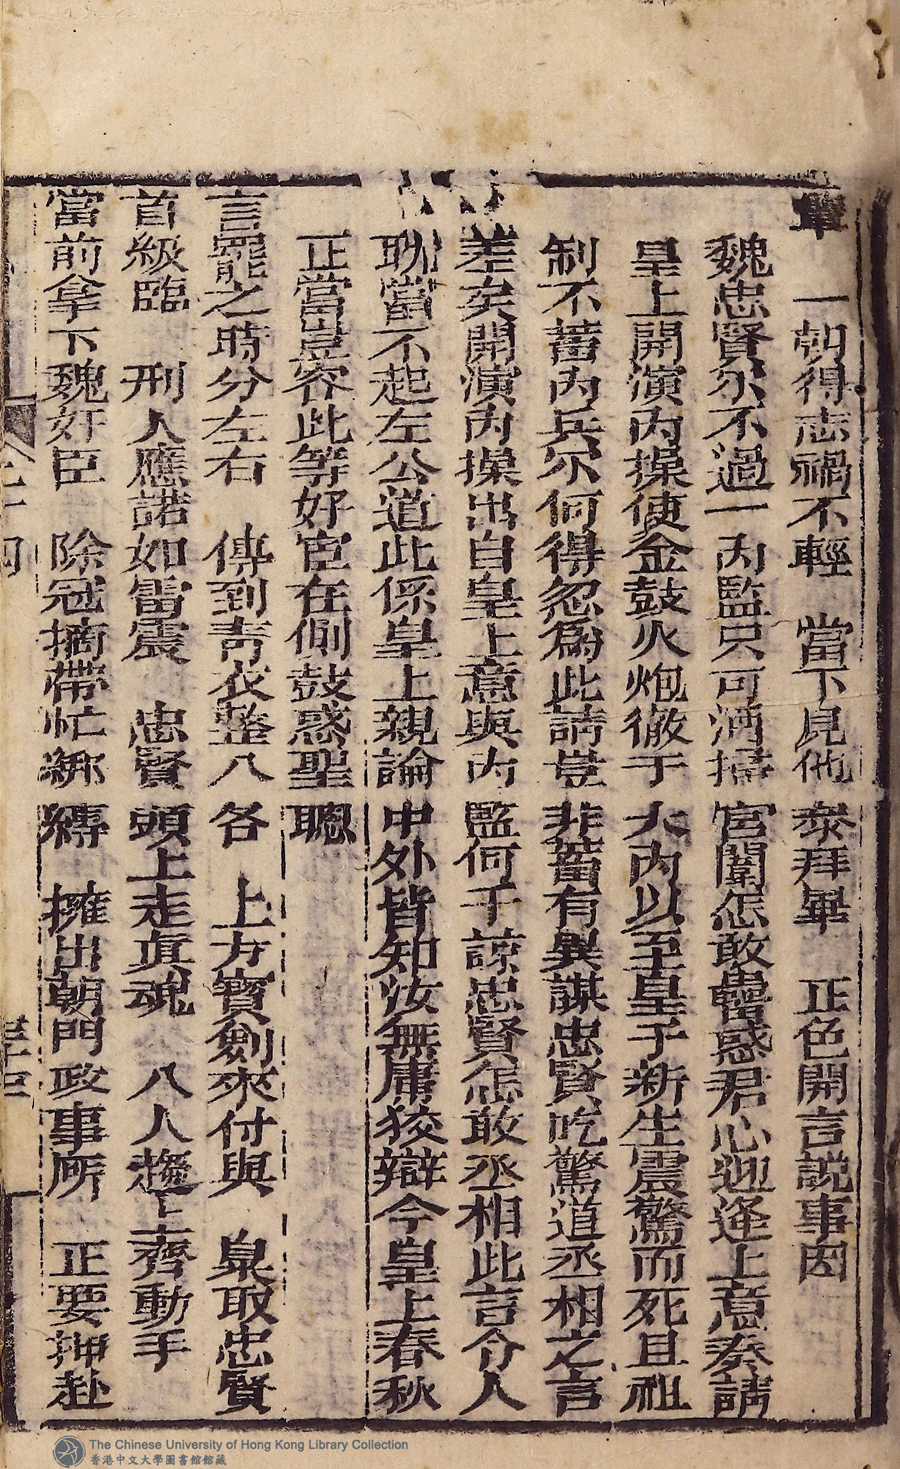 一朝得志禍不輕　當下見他　叅拜畢　正色開言説事因
魏忠賢尓不過一内監只可洒掃宮闈怎敢蠱惑君心迎逢上意奏請
皇上開演内操使金鼓火炮徹于大内以至皇子新生震驚而死且祖
制不蓄内兵尔何得忽爲此請豈非蓄有異謀忠賢吃驚道丞相之言
差矣開演内操出自皇上意與内監何干諒忠賢怎敢丞相此言令人
耽當不起左公道此係皇上親論中外皆知汝無庸狡辯今皇上春秋
正當豈容此等奸宦在側鼓惑聖聰
言罷之時分左右　傳到青衣整八各　上方寳劍來付與　梟取忠賢
首級臨　刑人應諾如雷震　忠賢頭上走真魂　八人趨上齊動手
當前拿下魏奸臣　除冠摘帶忙綁縛　擁出朝門政事所　正要押赴
The Chinese University of Hong Kong Library Collection
香港中文大學圖書館館藏